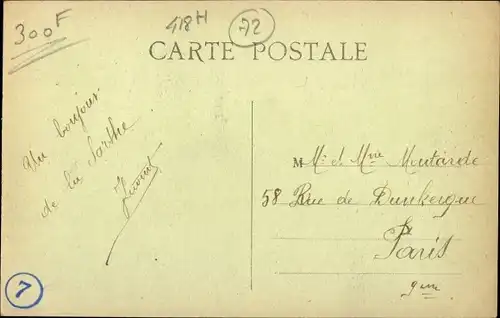 300F
418H
72
CARTE POSTALE
Un bonjour
de la Sarthe
M Mr et Mme Moutarde
58 Rue de Dunkerque
Paris
9eme
7